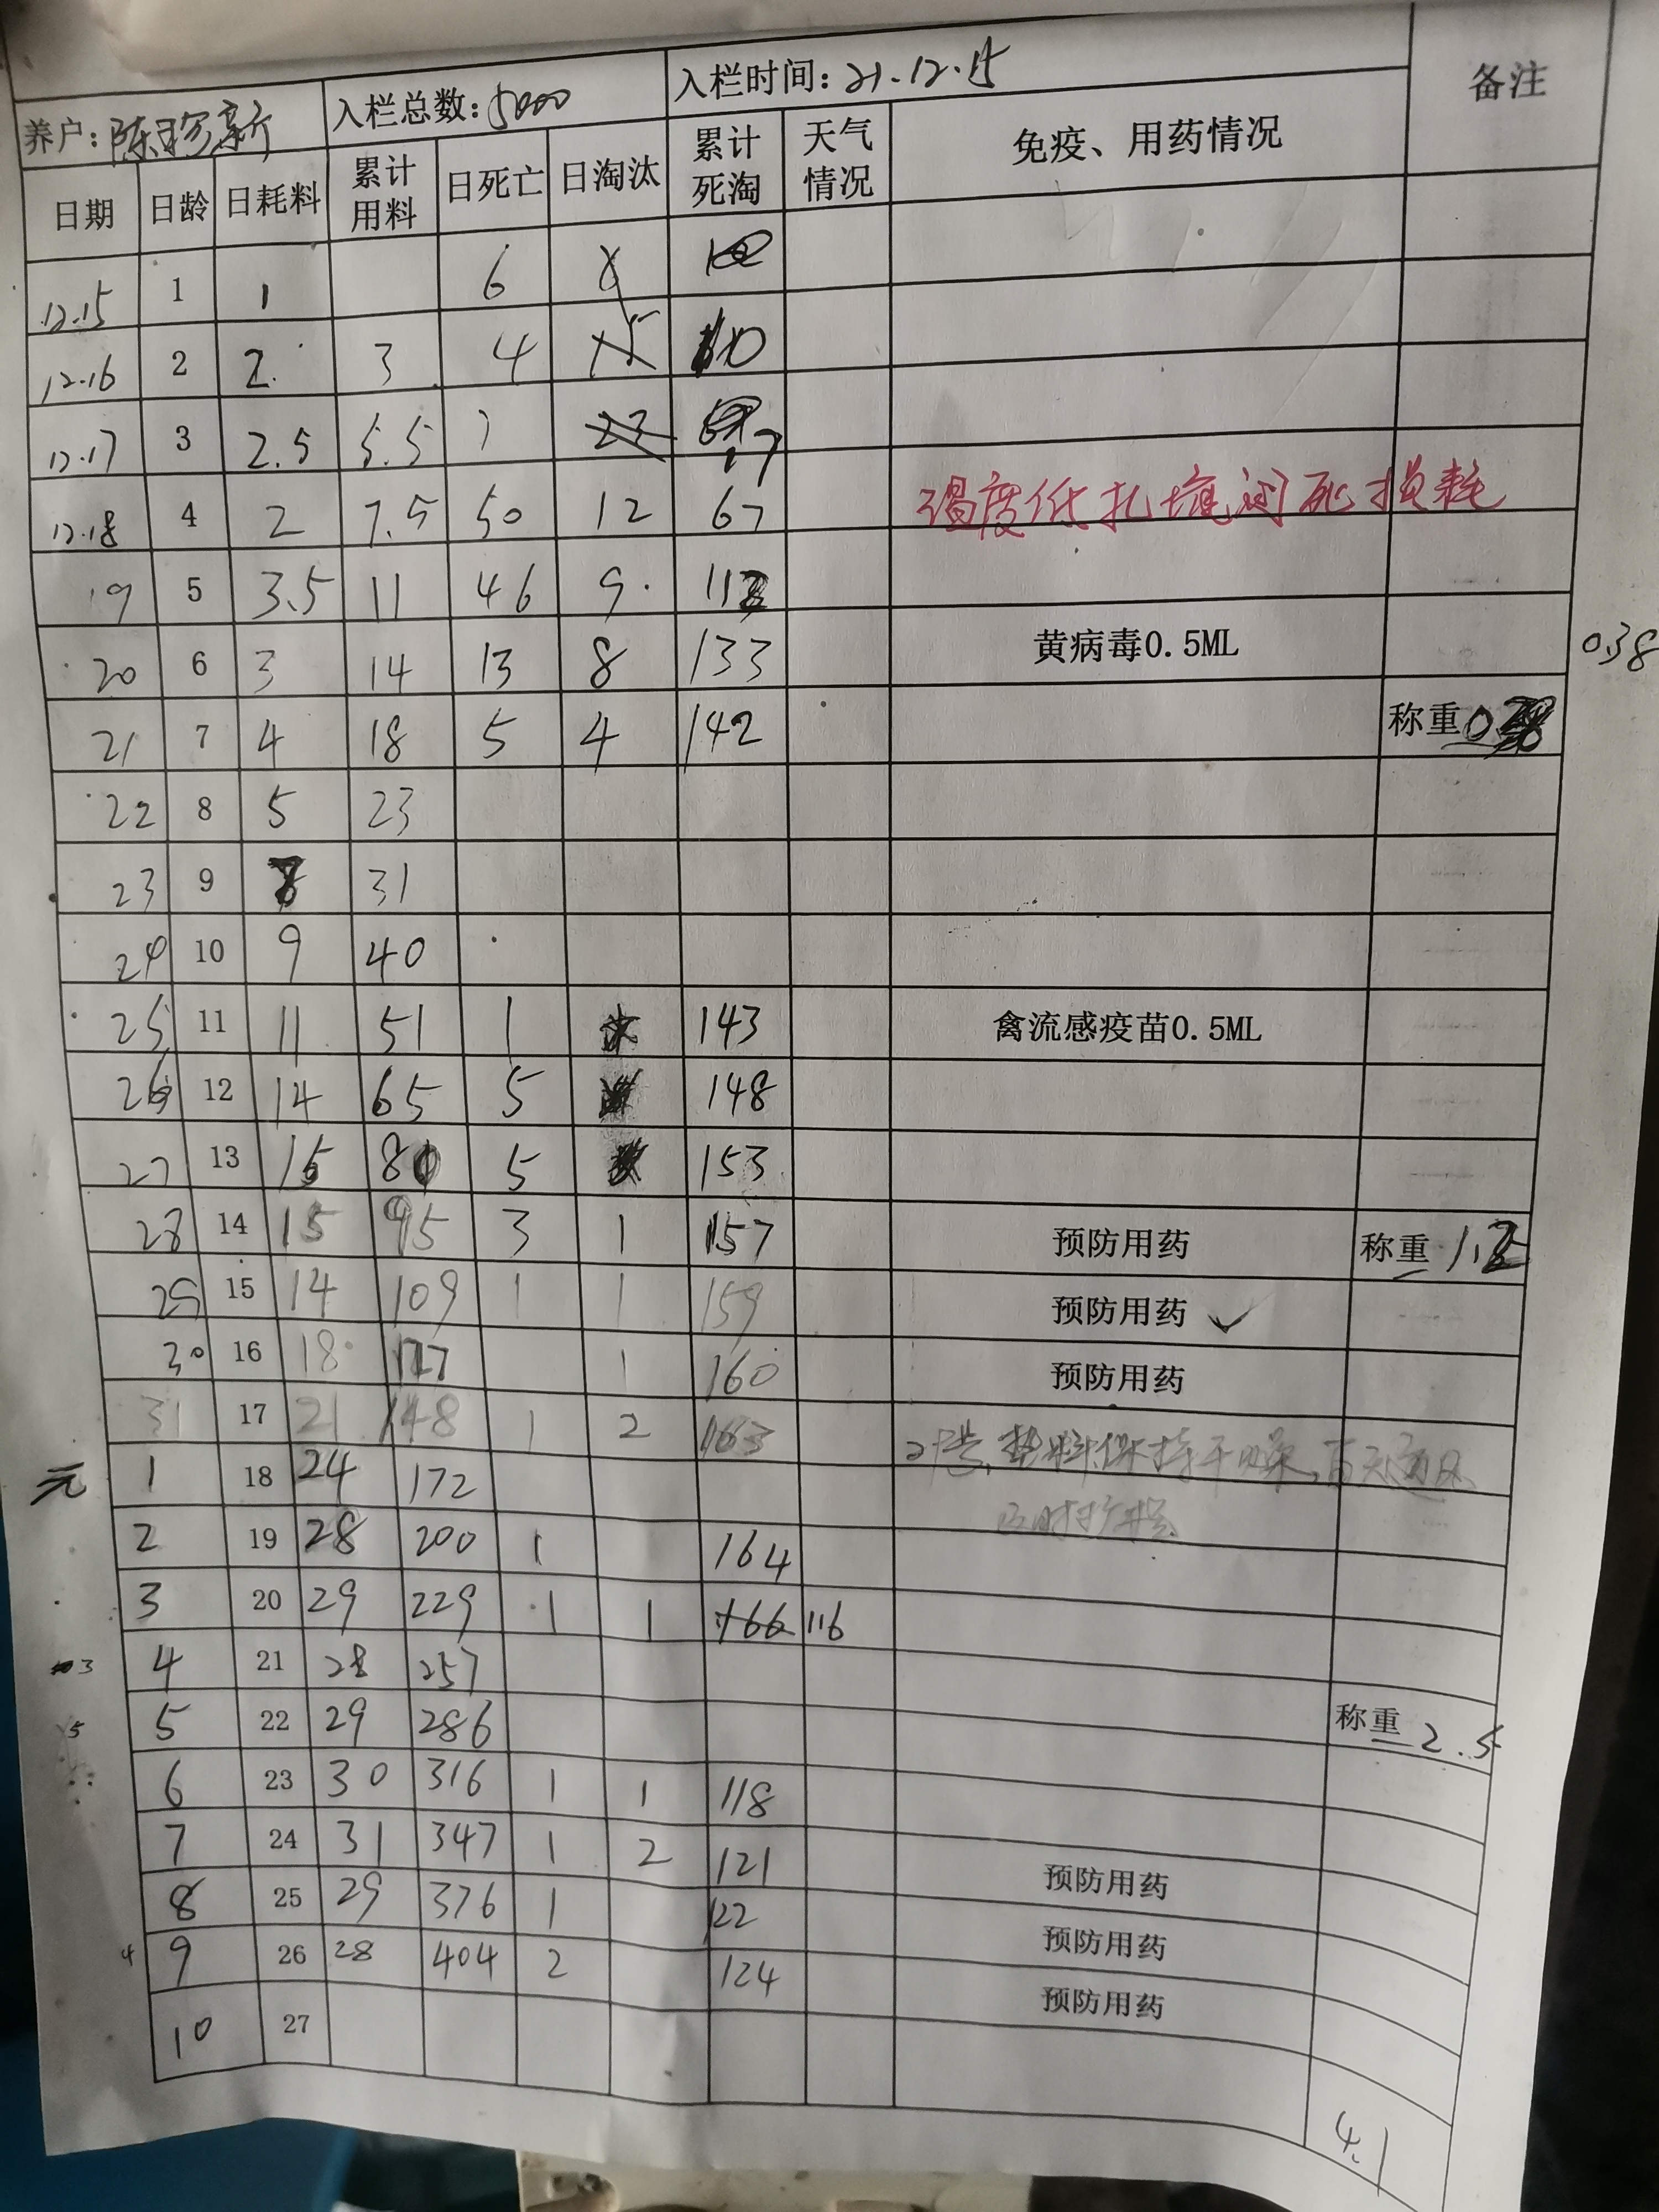 养户: 陈珍新 入栏总数: 5000 入栏时间: 21.12.15 备注
日期 日龄 日耗料 累计用料 日死亡 日淘汰 累计死淘 天气情况 免疫、用药情况
12.15 1 1 6
12.16 2 2 3 4 10
12.17 3 2.5 5.5 7 17
12.18 4 2 7.5 50 12 67 温度低扎堆闷死损耗
19 5 3.5 11 46 9
20 6 3 14 13 8 133 黄病毒0.5ML 0.38
21 7 4 18 5 4 142 称重
22 8 5 23
23 9 8 31
24 10 9 40
25 11 11 51 1 143 禽流感疫苗0.5ML
26 12 14 65 5 148
27 13 15 80 5 153
28 14 15 95 3 1 157 预防用药 称重 1.2
29 15 14 109 1 1 159 预防用药 ✓
30 16 18 127 1 160 预防用药
31 17 21 148 1 2 163 垫料保持干燥,白天通风
元 1 18 24 172 及时扩栏
2 19 28 200 1 164
3 20 29 229 1 1 166 116
3 4 21 28 257
5 5 22 29 286 称重 2.5
6 23 30 316 1 1 118
7 24 31 347 1 2 121 预防用药
8 25 29 376 1 122 预防用药
4 9 26 28 404 2 124 预防用药
10 27
4.1